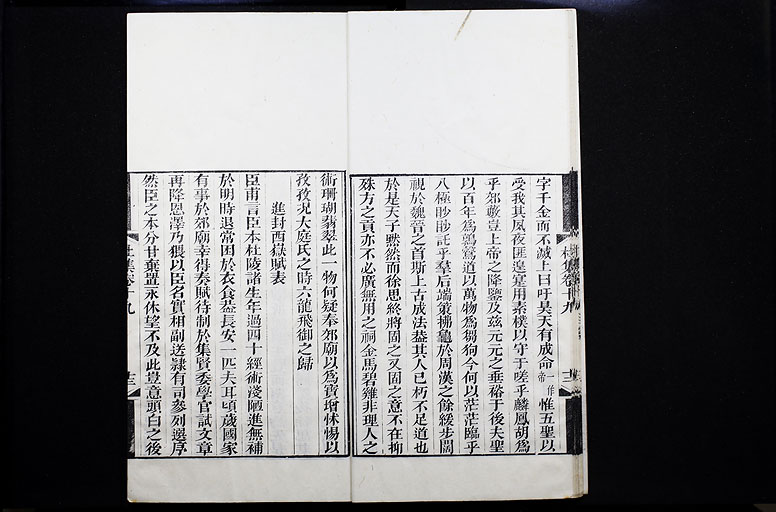 字千金而不滅上曰吁昊天有成命一作帝惟五聖以
受我其夙夜匪遑寔用素樸以守于嗟乎麟鳳胡為
乎郊藪豈上帝之降鑒及茲元元之垂裕于後夫聖
以百年為鶉鷇道以萬物為芻狗今何以茫茫臨乎
八極眇眇託乎羣后端策拂龜於周漢之餘緩步闊
視於魏晉之首斯上古成法蓋其人已朽不足道也
於是天子黙然而徐思終將固之又固之意不在抑
殊方之貢亦不必廣無用之祠金馬碧雞非理人之
術珊瑚翡翠此一物何疑奉郊廟以為寶增怵惕以
孜孜况大庭氏之時六龍飛御之歸
進封西嶽賦表
臣甫言臣本杜陵諸生年過四十經術淺陋進無補
於明時退常困於衣食蓋長安一匹夫耳頃歲國家
有事於郊廟幸得奏賦待制於集賢委學官試文章
再降恩澤乃猥以臣名實相副送隷有司參列選序
然臣之本分甘棄置永休望不及此豈意頭白之後
杜集卷十九